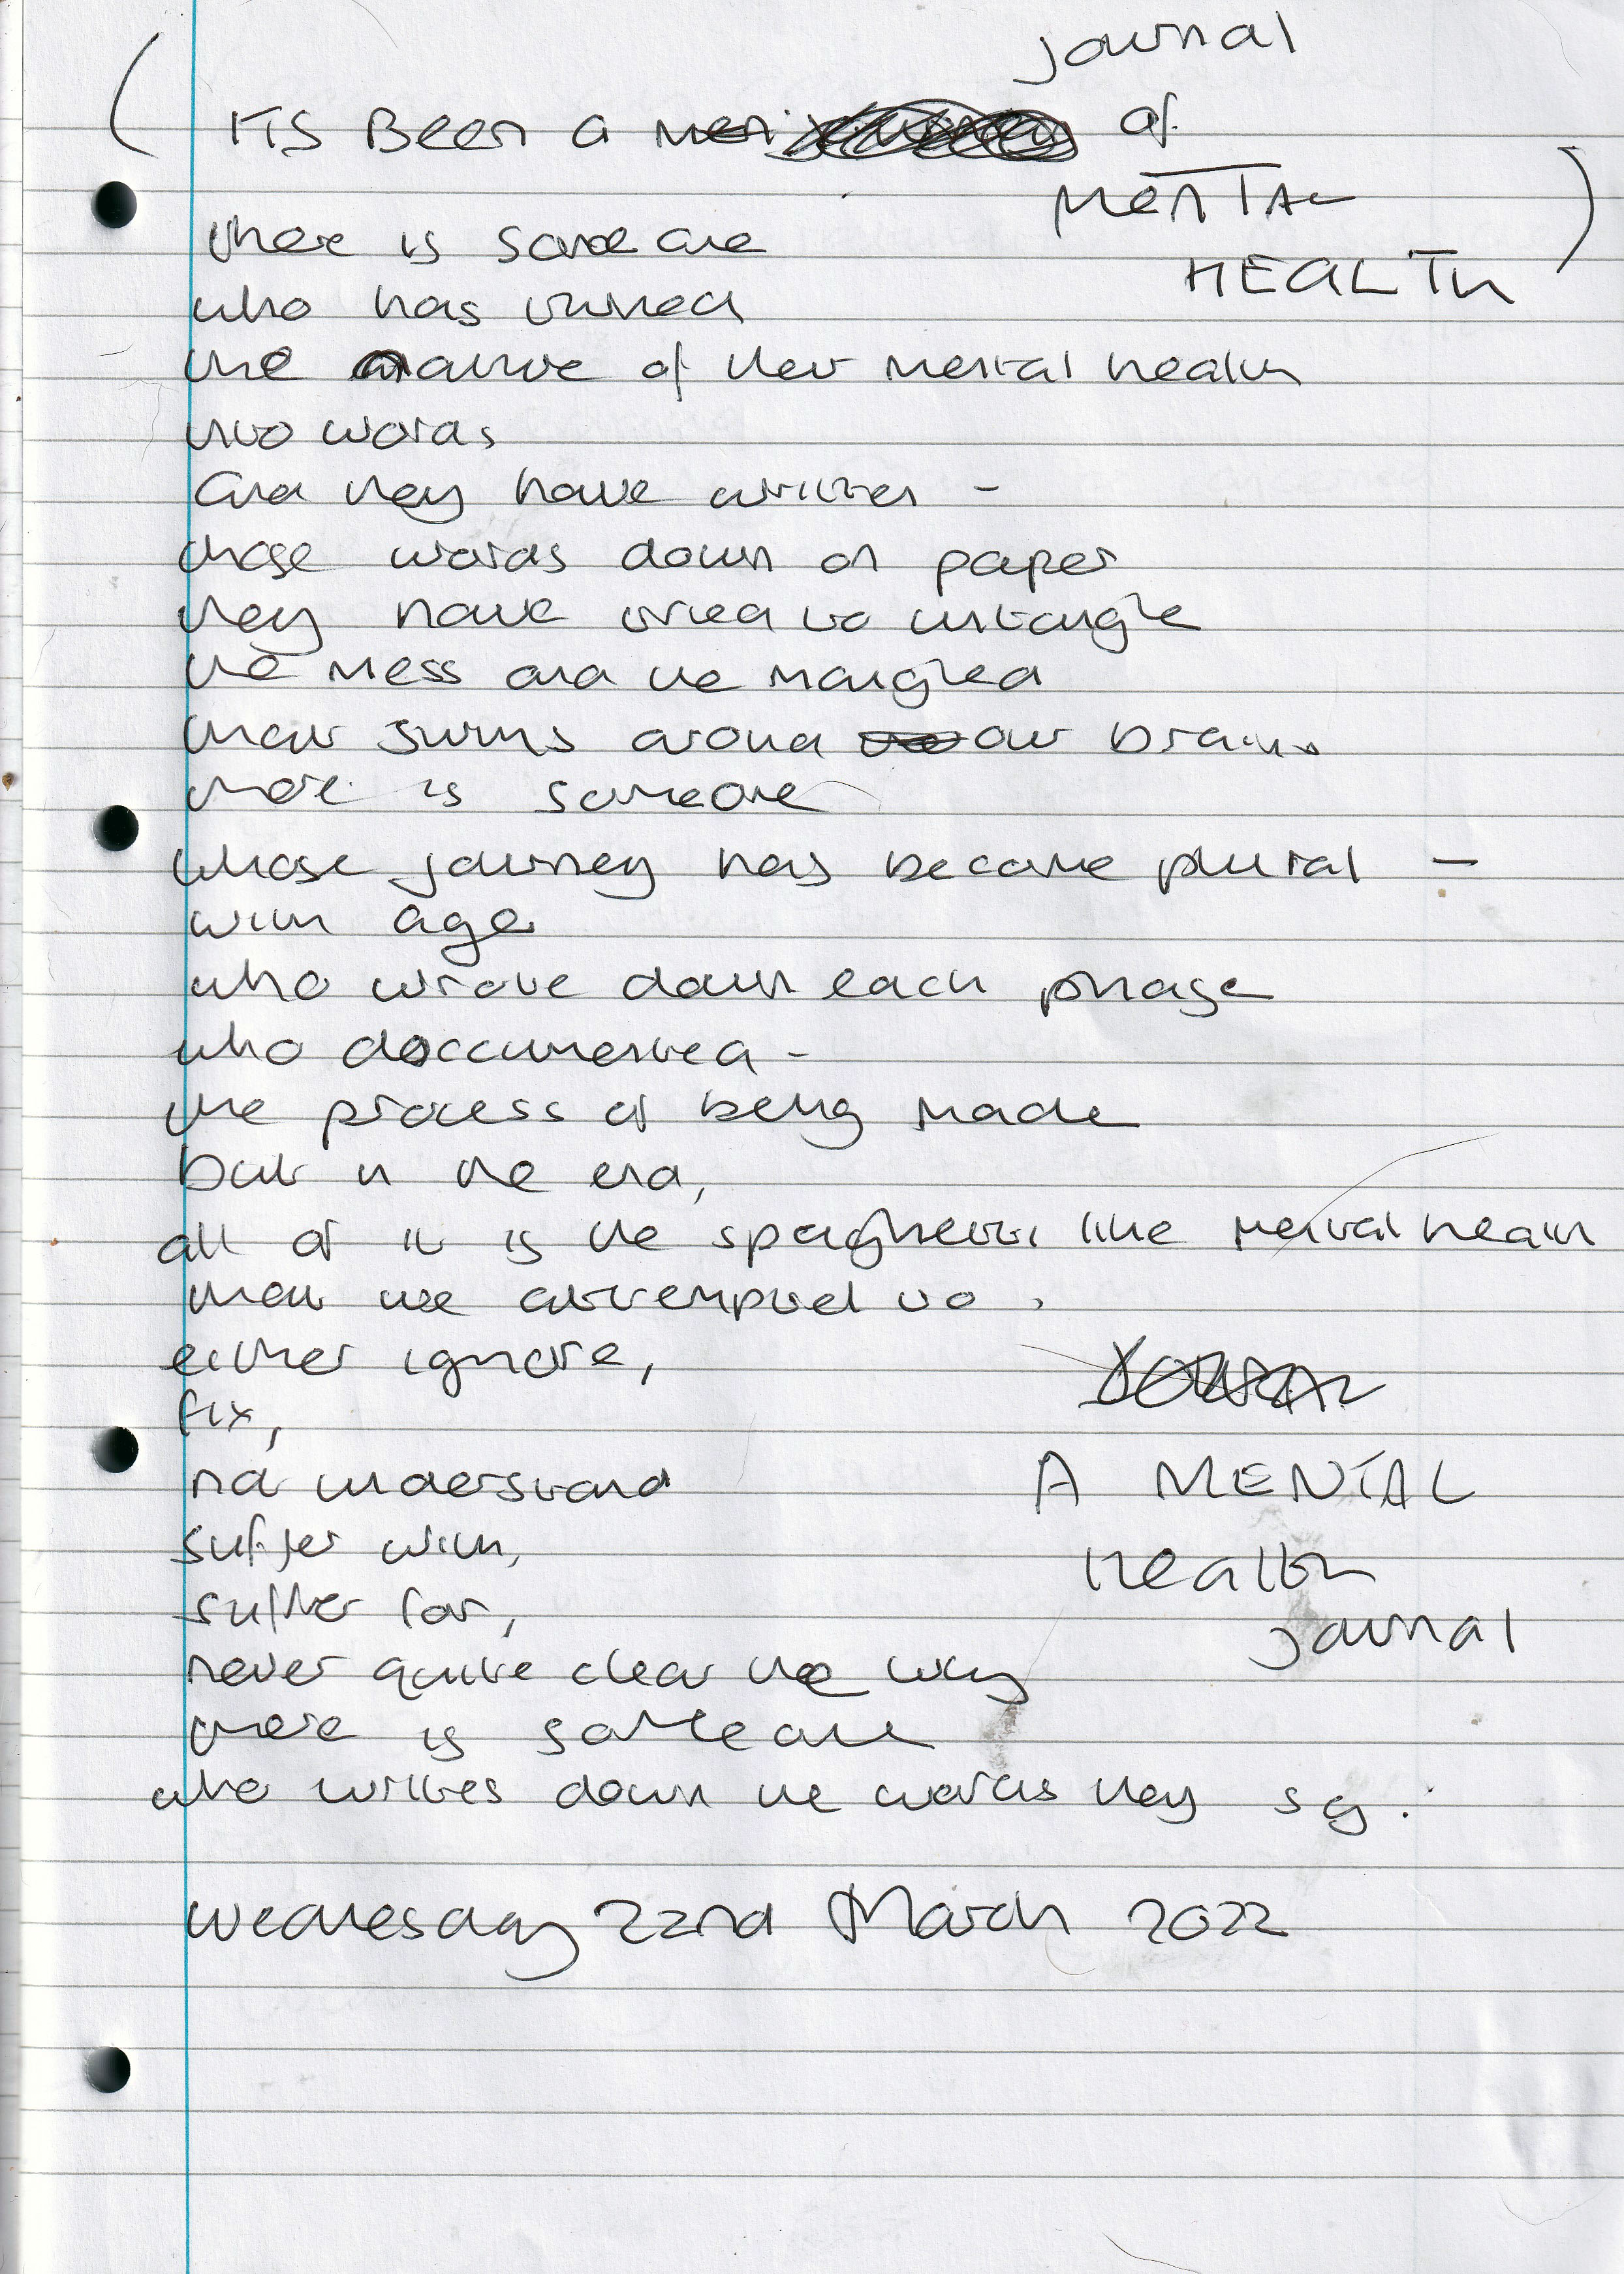 journal
(ITS Been a of
MENTAL
HEALTH)
there is someone
who has turned
the nature of their mental health
into words
and they have written -
those words down on paper
they have tried to untangle
the mess and the mangled
that swims around our brains
there is someone
whose journey has become plural -
with age
who wrote down each phase
who documented -
the process of being made
but in the end,
all of it is the spaghetti like mental health
that we attempted to
either ignore,
fix,
not understand
suffer with,
suffer for,
never quite clear the way
there is someone
who writes down the words they say.
A MENTAL
Health
journal
wednesday 22nd March 2022